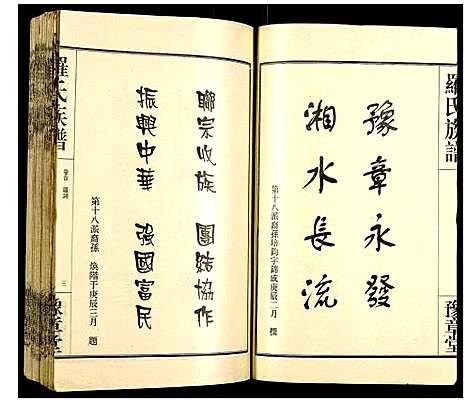 羅氏族譜
豫章堂
豫章永發
湘水長流
第十八派裔孫培鈞字錦成庚辰二月
聯宗收族 團結協作
振興中華 強國富民
第十八派裔孫 煥階于庚辰三月 題
羅氏族譜
卷首 題詞
三
豫章堂